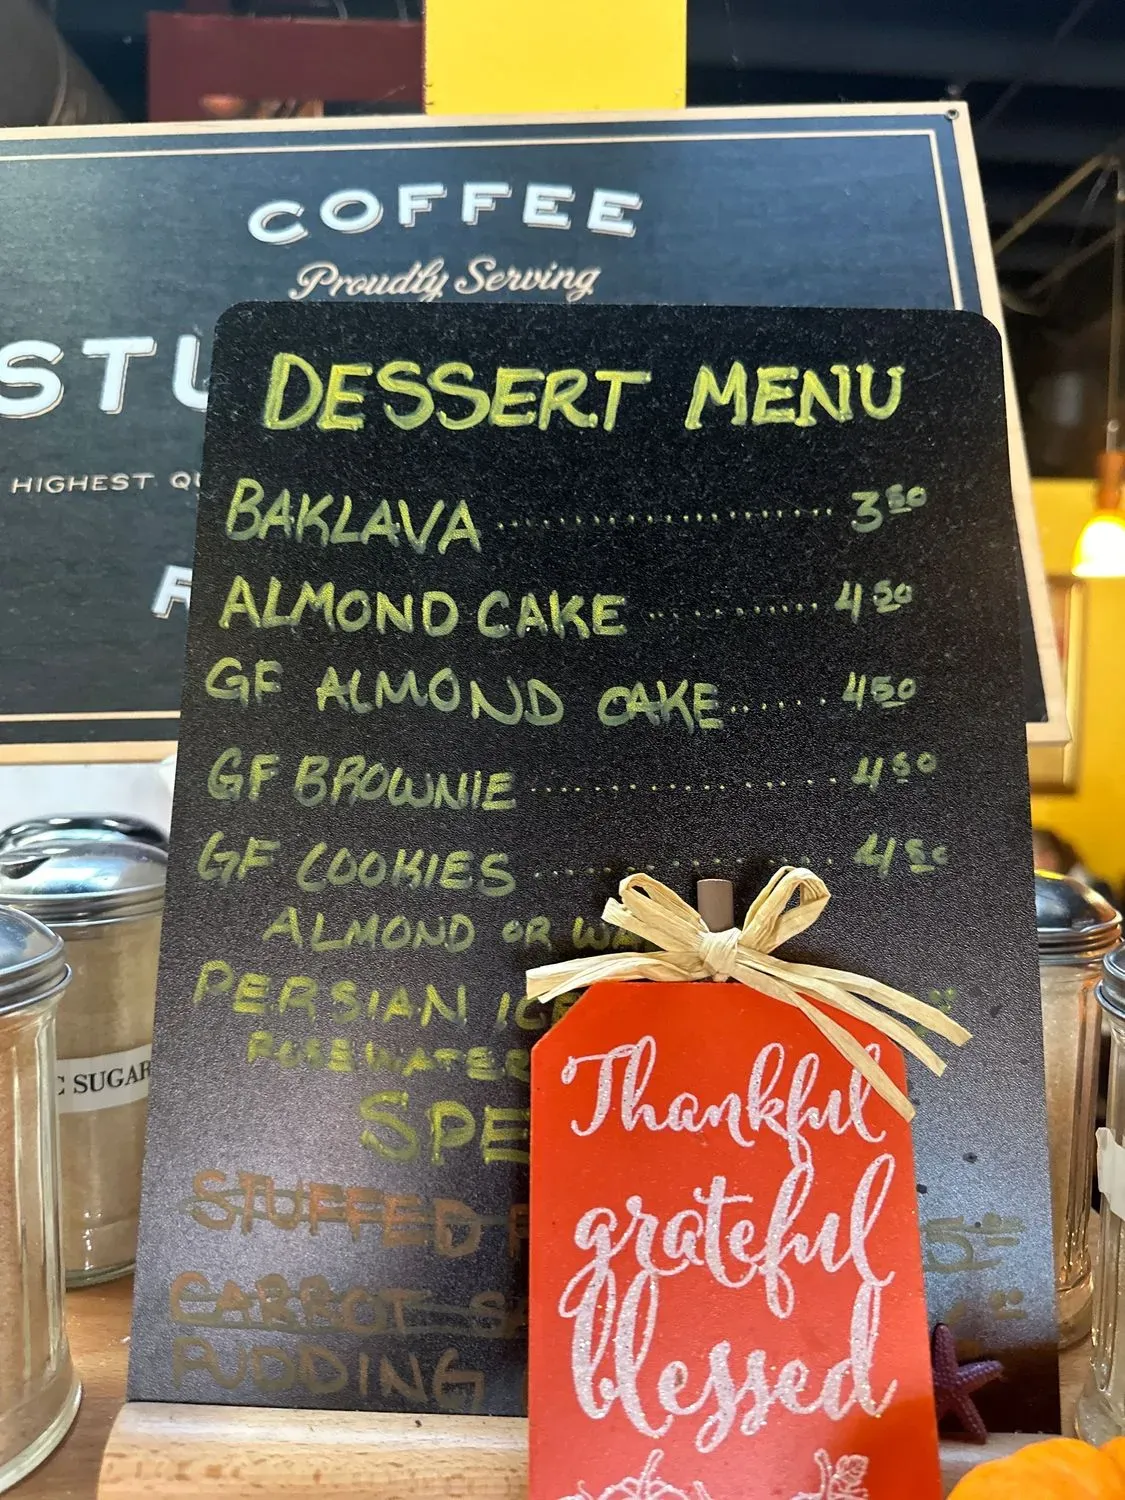 COFFEE
Proudly Serving
STU
HIGHEST
DESSERT MENU
BAKLAVA .................... 3.50
ALMOND CAKE ........... 4.50
GF ALMOND CAKE ...... 4.50
GF BROWNIE ................ 4.50
GF COOKIES ............... 4.50
ALMOND OR
PERSIAN
ROSEWATER
SPE
STUFFED
CARROT
PUDDING
C SUGAR
Thankful
grateful
blessed